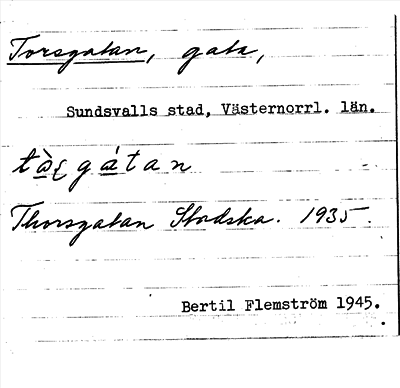 Torsgatan, gata,
Sundsvalls stad, Västernorrl. län.
gátan
Thorsgatan Stadska. 1935.
Bertil Flemström 1945.